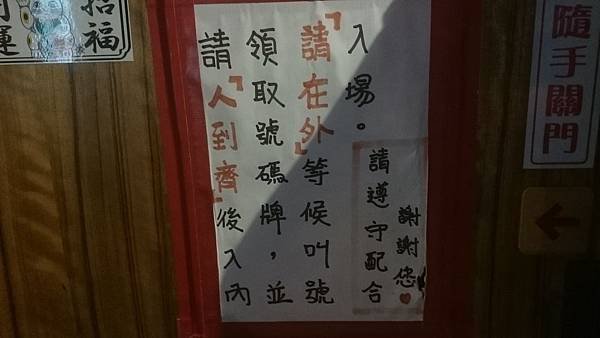 招福
運
請「人到齊」後入內
領取號碼牌，並
「請在外」等候叫號
入場。
請遵守配合
謝謝您♥
隨手關門